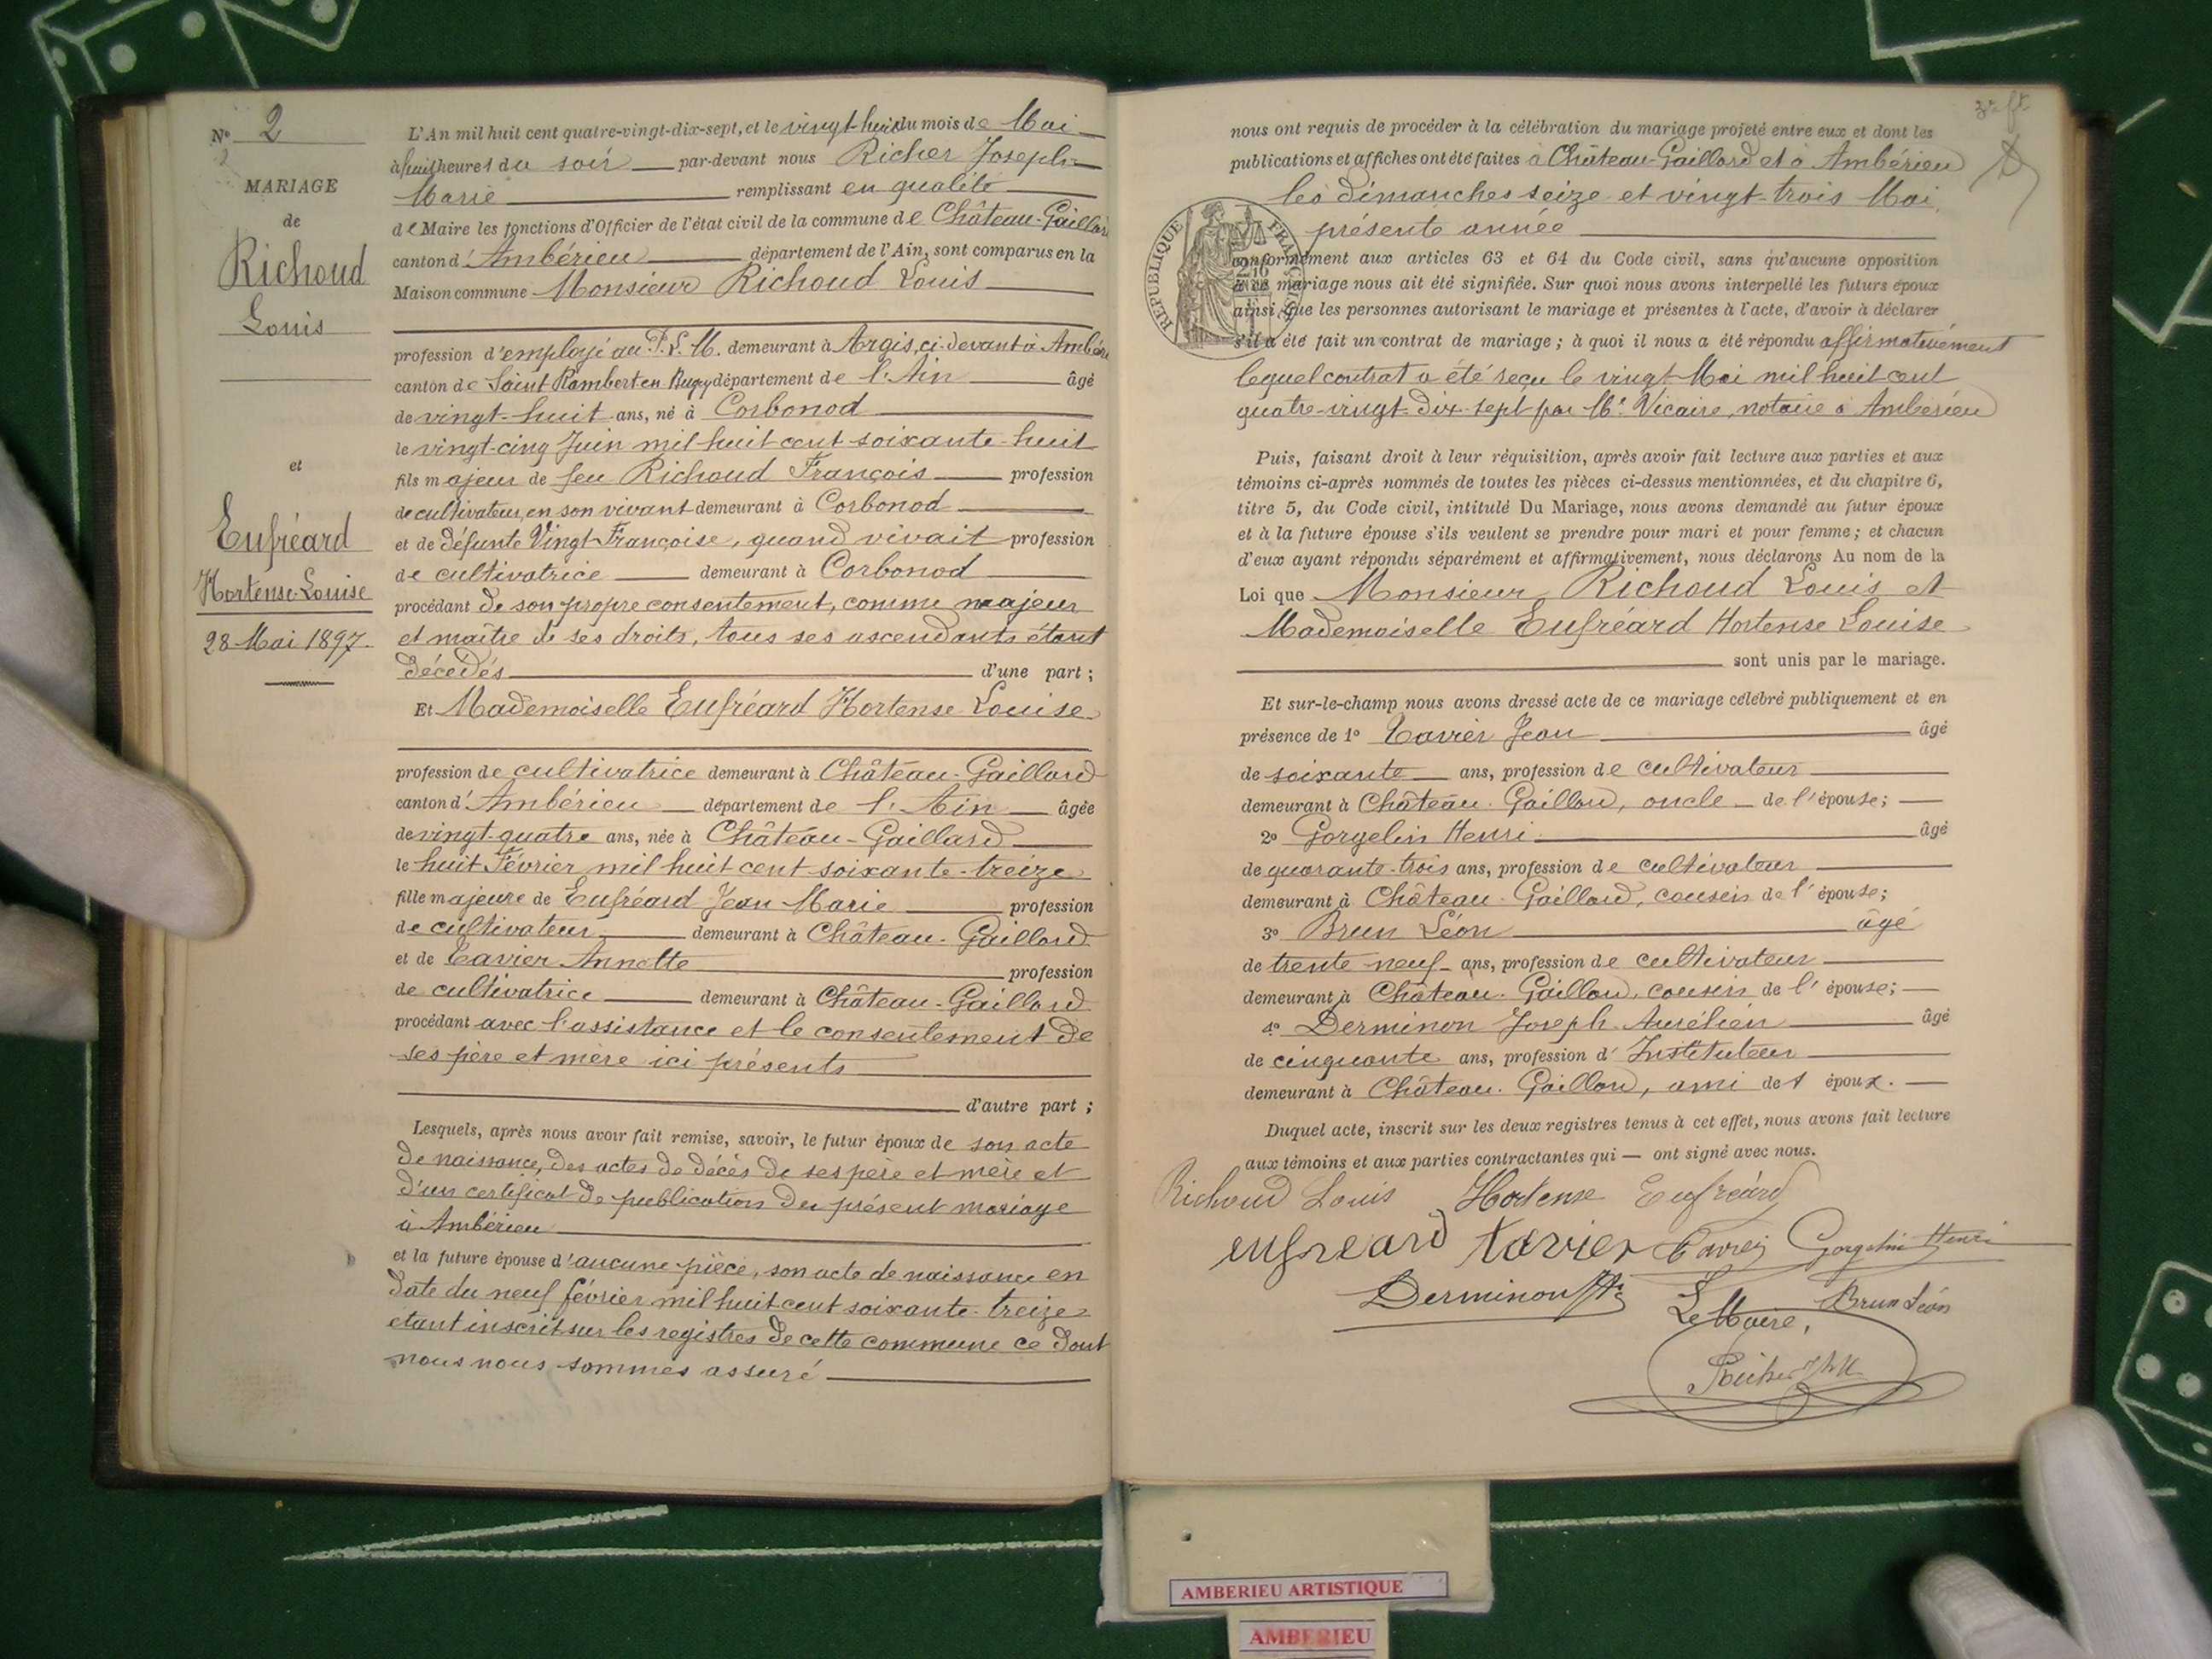 N° 2
MARIAGE
de
Richoud
Louis
et
Eufréard
Hortense-Louise
28 Mai 1897.
L'An mil huit cent quatre-vingt-dix-sept, et le vingt-huit du mois de Mai
à huit heures du soir par-devant nous Richer Joseph-
Marie remplissant en qualité
de Maire les fonctions d'Officier de l'état civil de la commune de Château-Gaillard
canton d'Ambérieu département de l'Ain, sont comparus en la
Maison commune Monsieur Richoud Louis
profession d'employé au P. L. M. demeurant à Argis, ci-devant à Ambérieu
canton de Saint Rambert en Bugey département de l'Ain âgé
de vingt-huit ans, né à Corbonod
le vingt-cinq Juin mil huit cent soixante-huit
fils majeur de feu Richoud François profession
de cultivateur, en son vivant demeurant à Corbonod
et de défunte Vingt Françoise, quand vivait profession
de cultivatrice demeurant à Corbonod
procédant de son propre consentement, comme majeur
et maître de ses droits, tous ses ascendants étant
décédés d'une part ;
Et Mademoiselle Eufréard Hortense Louise
profession de cultivatrice demeurant à Château-Gaillard
canton d'Ambérieu département de l'Ain âgée
de vingt-quatre ans, née à Château-Gaillard
le huit Février mil huit cent soixante-treize
fille majeure de Eufréard Jean Marie profession
de cultivateur demeurant à Château-Gaillard
et de Tavier Annette profession
de cultivatrice demeurant à Château-Gaillard
procédant avec l'assistance et le consentement de
ses père et mère ici présents
d'autre part ;
Lesquels, après nous avoir fait remise, savoir, le futur époux de son acte
de naissance, des actes de décès de ses père et mère et
d'un certificat de publication du présent mariage
à Ambérieu
et la future épouse d'aucune pièce, son acte de naissance en
date du neuf février mil huit cent soixante-treize
étant inscrit sur les registres de cette commune ce dont
nous nous sommes assuré
nous ont requis de procéder à la célébration du mariage projeté entre eux et dont les
publications et affiches ont été faites à Château-Gaillard et à Ambérieu
les dimanches seize et vingt-trois Mai,
présente année
REPUBLIQUE FRANÇAISE
conformément aux articles 63 et 64 du Code civil, sans qu'aucune opposition
à ce mariage nous ait été signifiée. Sur quoi nous avons interpellé les futurs époux
ainsi que les personnes autorisant le mariage et présentes à l'acte, d'avoir à déclarer
s'il a été fait un contrat de mariage ; à quoi il nous a été répondu affirmativement
lequel contrat a été reçu le vingt Mai mil huit cent
quatre-vingt-dix-sept par Me Vicaire, notaire à Ambérieu
Puis, faisant droit à leur réquisition, après avoir fait lecture aux parties et aux
témoins ci-après nommés de toutes les pièces ci-dessus mentionnées, et du chapitre 6,
titre 5, du Code civil, intitulé Du Mariage, nous avons demandé au futur époux
et à la future épouse s'ils veulent se prendre pour mari et pour femme ; et chacun
d'eux ayant répondu séparément et affirmativement, nous déclarons Au nom de la
Loi que Monsieur Richoud Louis et
Mademoiselle Eufréard Hortense Louise
sont unis par le mariage.
Et sur-le-champ nous avons dressé acte de ce mariage célébré publiquement et en
présence de 1° Tavier Jean âgé
de soixante ans, profession de cultivateur
demeurant à Château-Gaillard, oncle de l'épouse ;
2° Gorgelin Henri âgé
de quarante-trois ans, profession de cultivateur
demeurant à Château-Gaillard, cousin de l'épouse ;
3° Brun Léon âgé
de trente-neuf ans, profession de cultivateur
demeurant à Château-Gaillard, cousin de l'épouse ;
4° Derminon Joseph-Aurélien âgé
de cinquante ans, profession d'Instituteur
demeurant à Château-Gaillard, ami des époux.
Duquel acte, inscrit sur les deux registres tenus à cet effet, nous avons fait lecture
aux témoins et aux parties contractantes qui — ont signé avec nous.
Richoud Louis Hortense Eufréard
eufreard tavier Gorgelin Henri
Derminon Le Maire, Brun Léon
Richer
AMBERIEU ARTISTIQUE
AMBERIEU